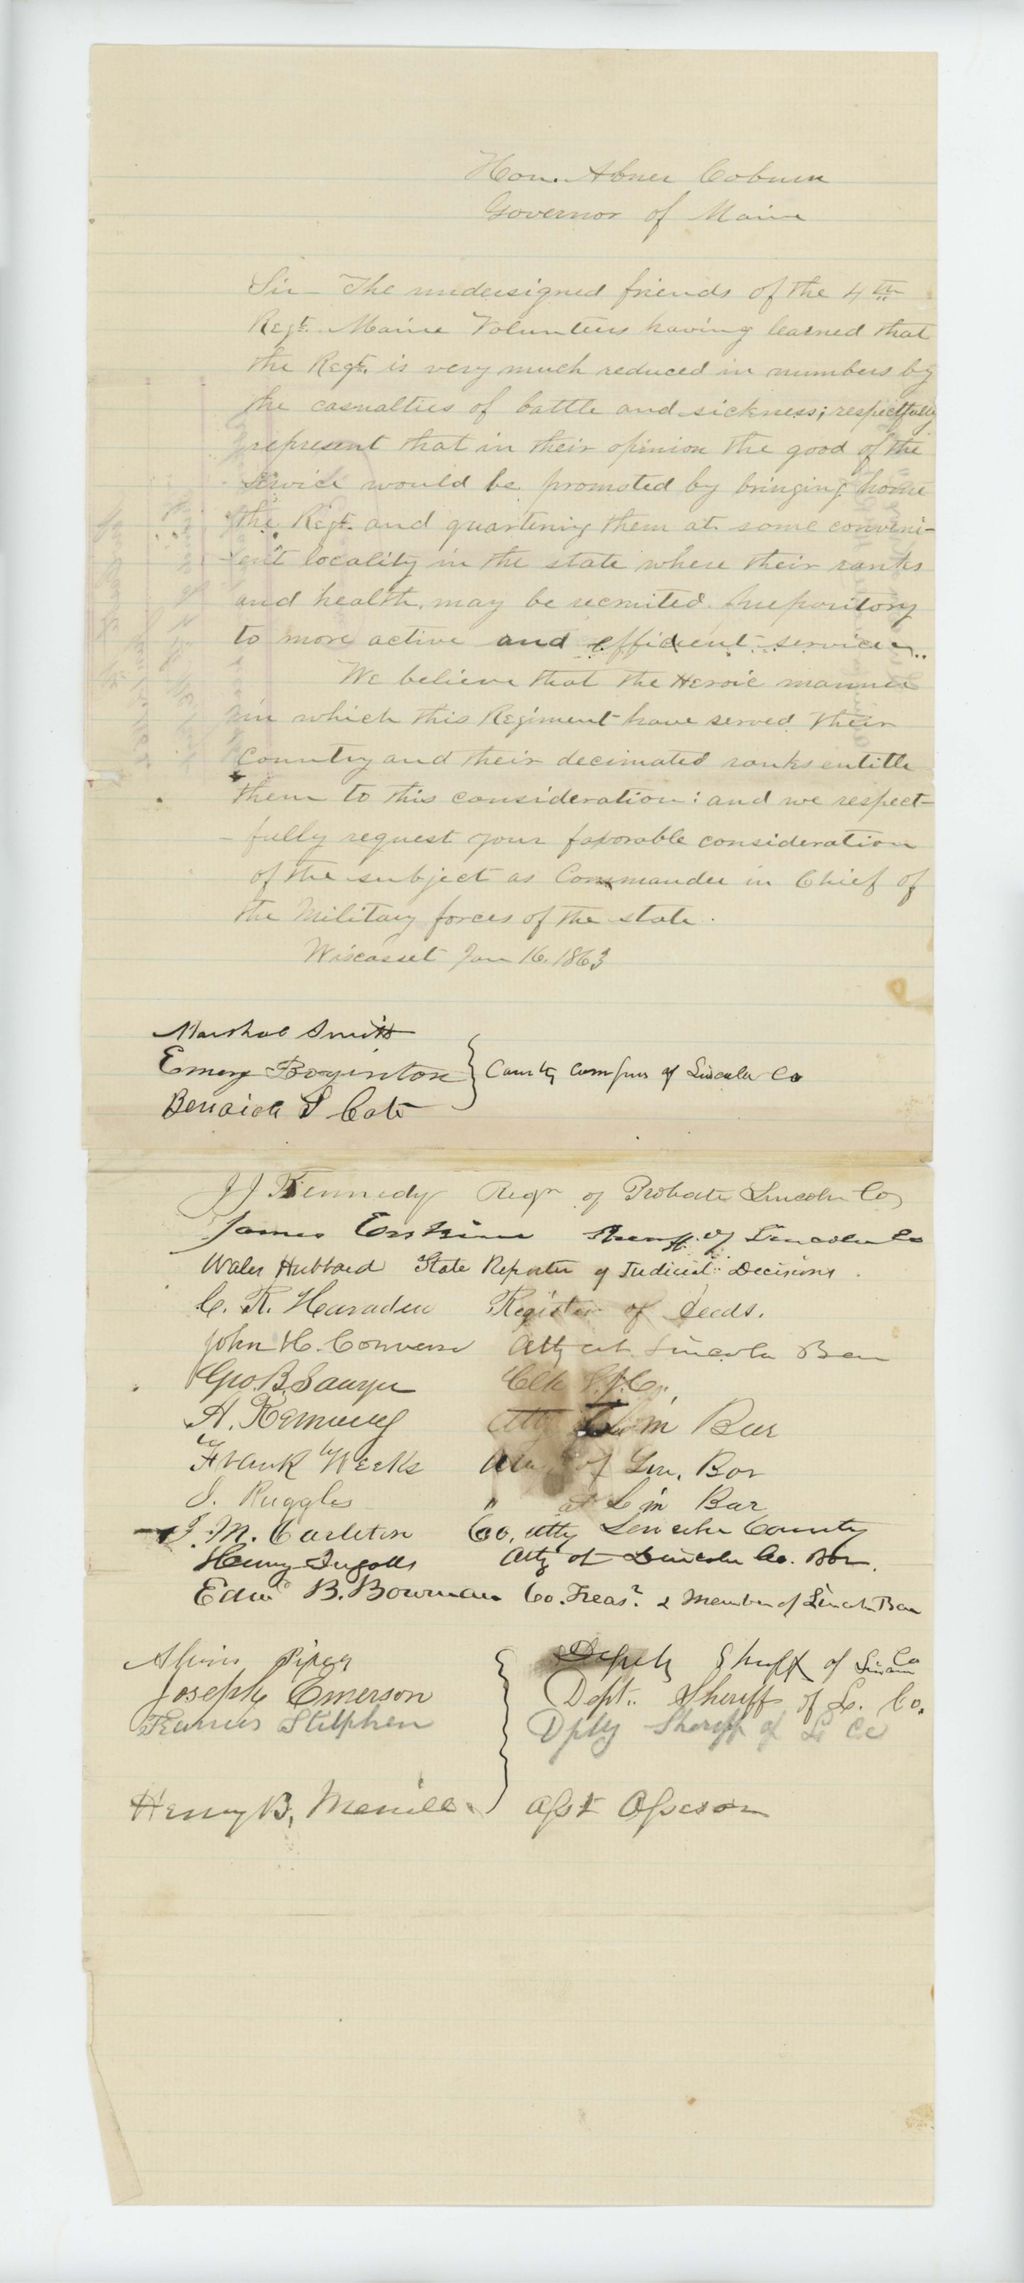 Hon. Abner Coburn
Governor of Maine
Sir - The undersigned friends of the 4th
Regt. Maine Volunteers having learned that
the Regt. is very much reduced in numbers by
the casualties of battle and sickness; respectfully
represent that in their opinion the good of the
service would be promoted by bringing home
the Regt. and quartering them at some conveni-
-ent locality in the state where their ranks
and health, may be recruited preparitory
to more active and efficient service..
We believe that the Heroic manner
in which this Regiment have served their
country and their decimated ranks entitle
them to this consideration: and we respect-
-fully request your favorable consideration
of the subject as Commander in Chief of
the Military forces of the state.
Wiscasset Jan 16. 1863
Marshal Smith
Emery Boyinton } County Commrs of Lincoln Co
Berwick Cate
J J Kennedy Regr of Probate Lincoln Co
James Erskine Sheriff of Lincoln Co
Wales Hubbard State Reporter of Judicial Decisions.
C. R. Haraden Register of Deeds.
John H. Converse Atty at Lincoln Bar
Geo. B. Sawyer Clk S.J.C.
A. Lin Bar
Frank Weeks of Lin. Bar
J. Ruggles " at Lin Bar
J. M. Carleton Co. Atty Lincoln County
Henry Ingalls Atty at Lincoln Co. Bar.
Edwd B. Bowman Co. Treasr. & Member of Lincoln Bar
Alvin Piper Deputy Sheriff of Lincoln Co
Joseph Emerson Dept. Sheriff of L. Co.
Stilphen Dpty Sheriff of L Co
Henry B. Merrill. Asst Assessor